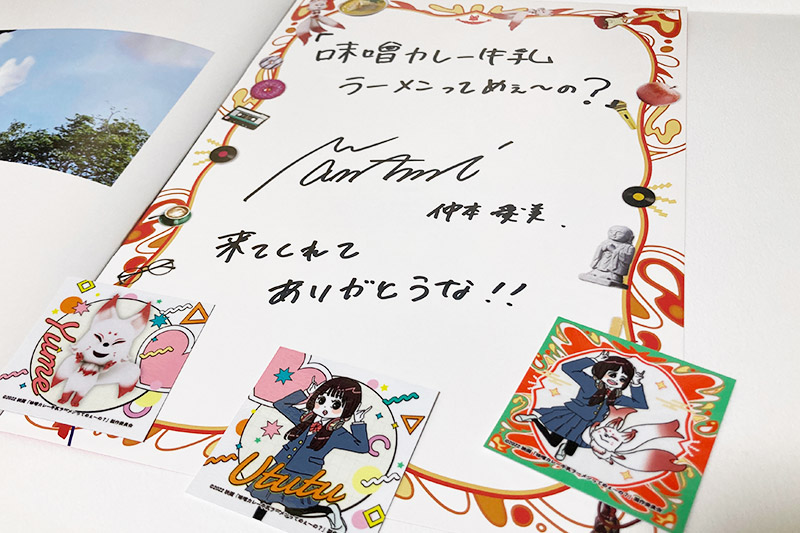 「味噌カレー牛乳
ラーメンってめぇ〜の?」
仲本愛美.
来てくれて
ありがとうな!!
Yume
©2022 映画「味噌カレー牛乳ラーメンってめぇ〜の?」製作委員会
Ututu
©2022 映画「味噌カレー牛乳ラーメンってめぇ〜の?」製
©2022 映画「味噌カレー牛乳ラーメンってめぇ〜の?」製作委員会